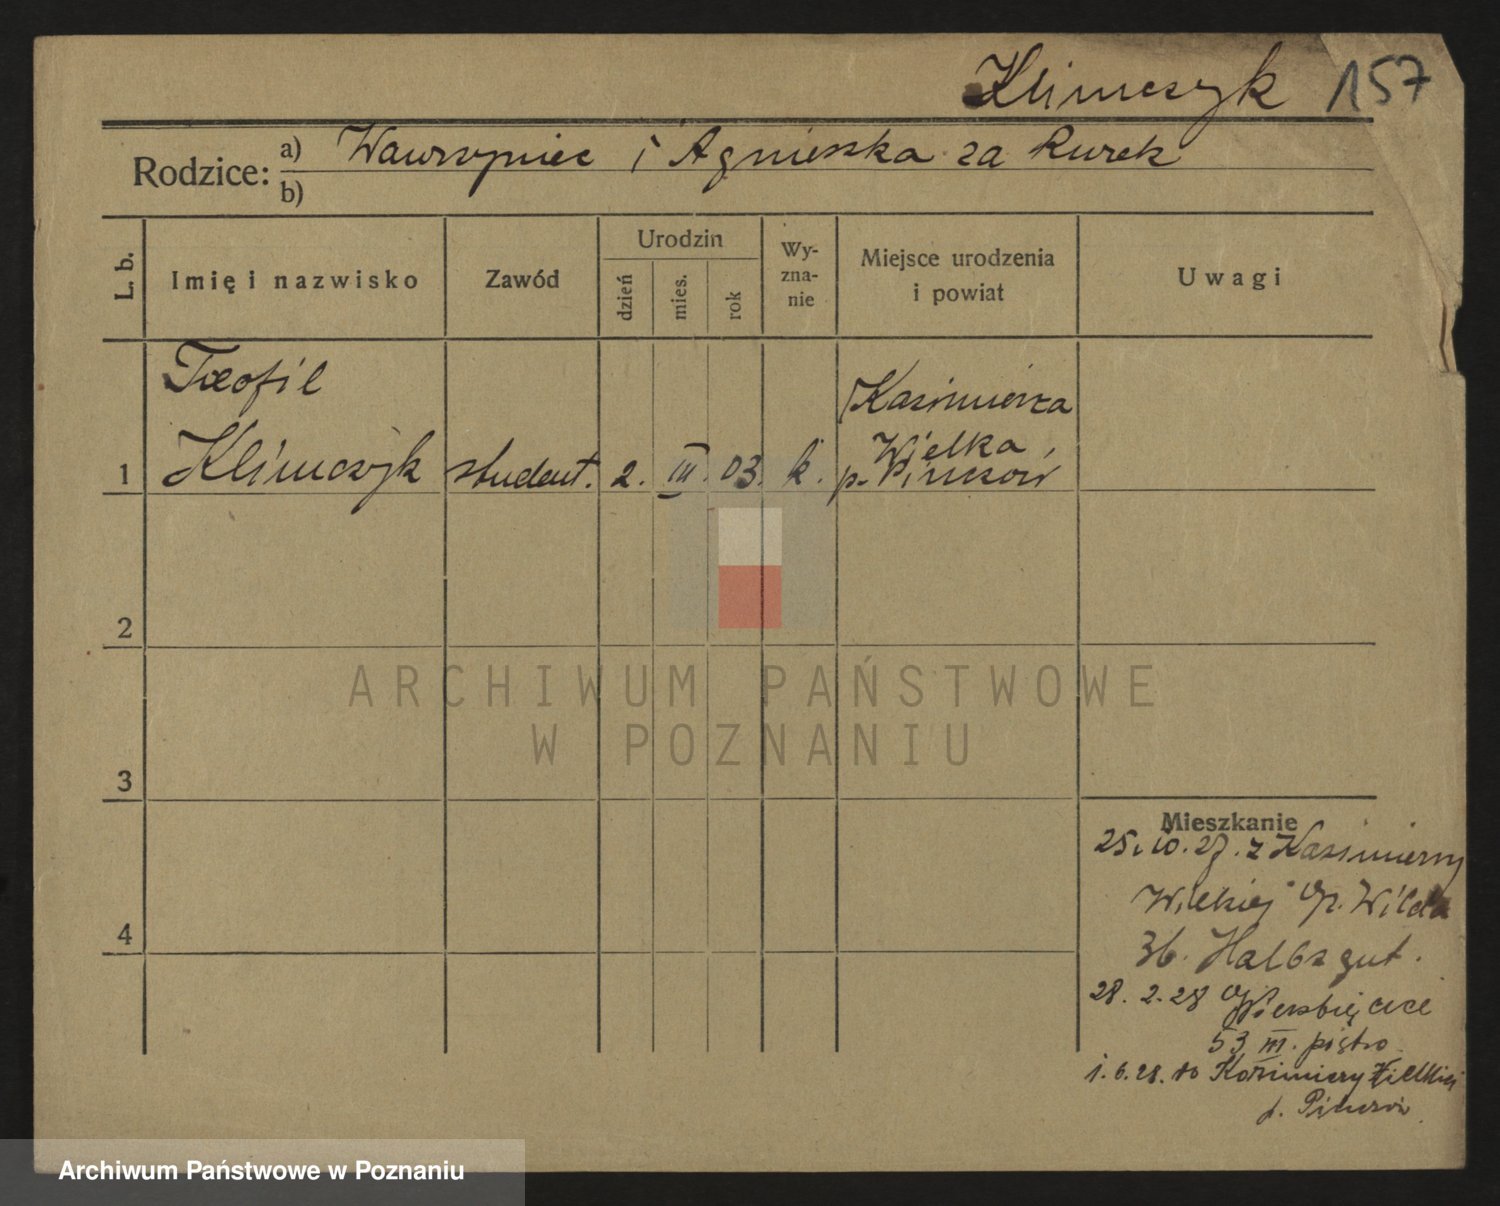 Klimczyk 157
Rodzice: a) Wawrzyniec i Agnieszka za Kurek
b)
L. b. Imię i nazwisko Zawód Urodzin dzień mies. rok Wy-zna-nie Miejsce urodzenia i powiat Uwagi
Teofil
Klimczyk student. 2. III. 03. k. Kazimierza
Wielka
p. Pinczów
1
2
3
4
Mieszkanie
25.10.27. z Kazimierzy
Wilkiej Gr. Wilda
36. Halbsgut.
28. 2. 28 Wierzbięcice
53 III. piętro
1.6.28. do Kazimierzy Wielkiej
p. Pinczów
ARCHIWUM PAŃSTWOWE
W POZNANIU
Archiwum Państwowe w Poznaniu